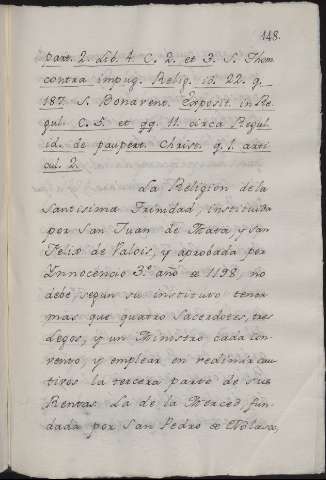 148.
part. 2. lib. 4. C. 2. et 3. S. Thom
contra impug. Relig. id. 22. q.
187. S. Bonavent. Exposit. in Re
gul. C. 5. et qq. 11. circa Regul.
id. de paupert. Christ. q. 1. arti
cul. 2.
La Religion de la
Santisima Trinidad, instituida
por San Juan de Mata y san
Felix de Valois, y aprobada por
Ynnocencio 3.º año de 1198, no
debe, segun su instituto tener
mas que quatro Sacerdotes, tres
Legos, y un Ministro cada con-
vento, y emplear en redimir cau
tivos la tercera parte de sus
Rentas. La de la Merced fun-
dada por San Pedro de Nolasco,